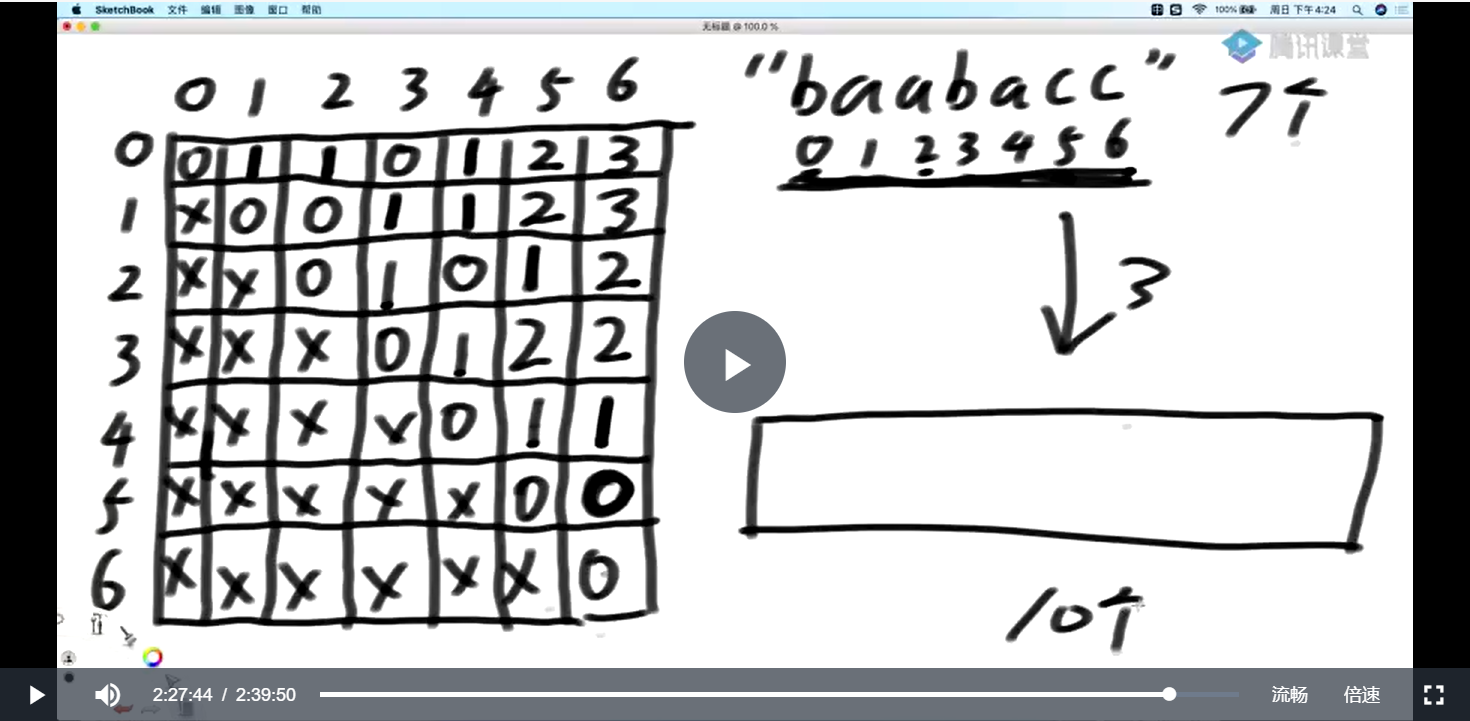 SketchBook 文件 编辑 图像 窗口 帮助 100% 周日 下午4:24
无标题 @ 100.0 %
腾讯课堂
0 1 2 3 4 5 6
0 0 1 1 0 1 2 3
1 x 0 0 1 1 2 3
2 x x 0 1 0 1 2
3 x x x 0 1 2 2
4 x x x x 0 1 1
5 x x x x x 0 0
6 x x x x x x 0
"baabacc" 7个
0 1 2 3 4 5 6
3
10个
2:27:44 / 2:39:50 流畅 倍速